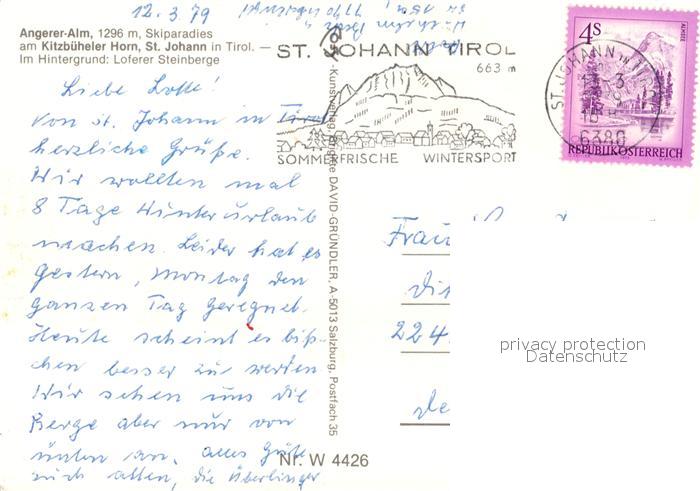 12.3.79
Angerer-Alm, 1296 m, Skiparadies
am Kitzbüheler Horn, St. Johann in Tirol. —
Im Hintergrund: Loferer Steinberge
ST. JOHANN TIROL
663 m
SOMMERFRISCHE WINTERSPORT
ST. JOHANN IN
6380
4S
REPUBLIK ÖSTERREICH
Liebe Lotte!
Von St. Johann in Tirol
herzliche Grüße.
Wir wollten mal
8 Tage Winterurlaub
machen. Leider hat es
gestern, Montag den
ganzen Tag geregnet.
Heute scheint es biß-
chen besser zu werden
Wir sehen uns die
Berge aber nur von
unten an. Alles Gute
euch allen, die Überlinger
Kunstverlag Brigitte DAVID-GRÜNDLER, A-5013 Salzburg, Postfach 35
Nr. W 4426
Frau
224
privacy protection
Datenschutz